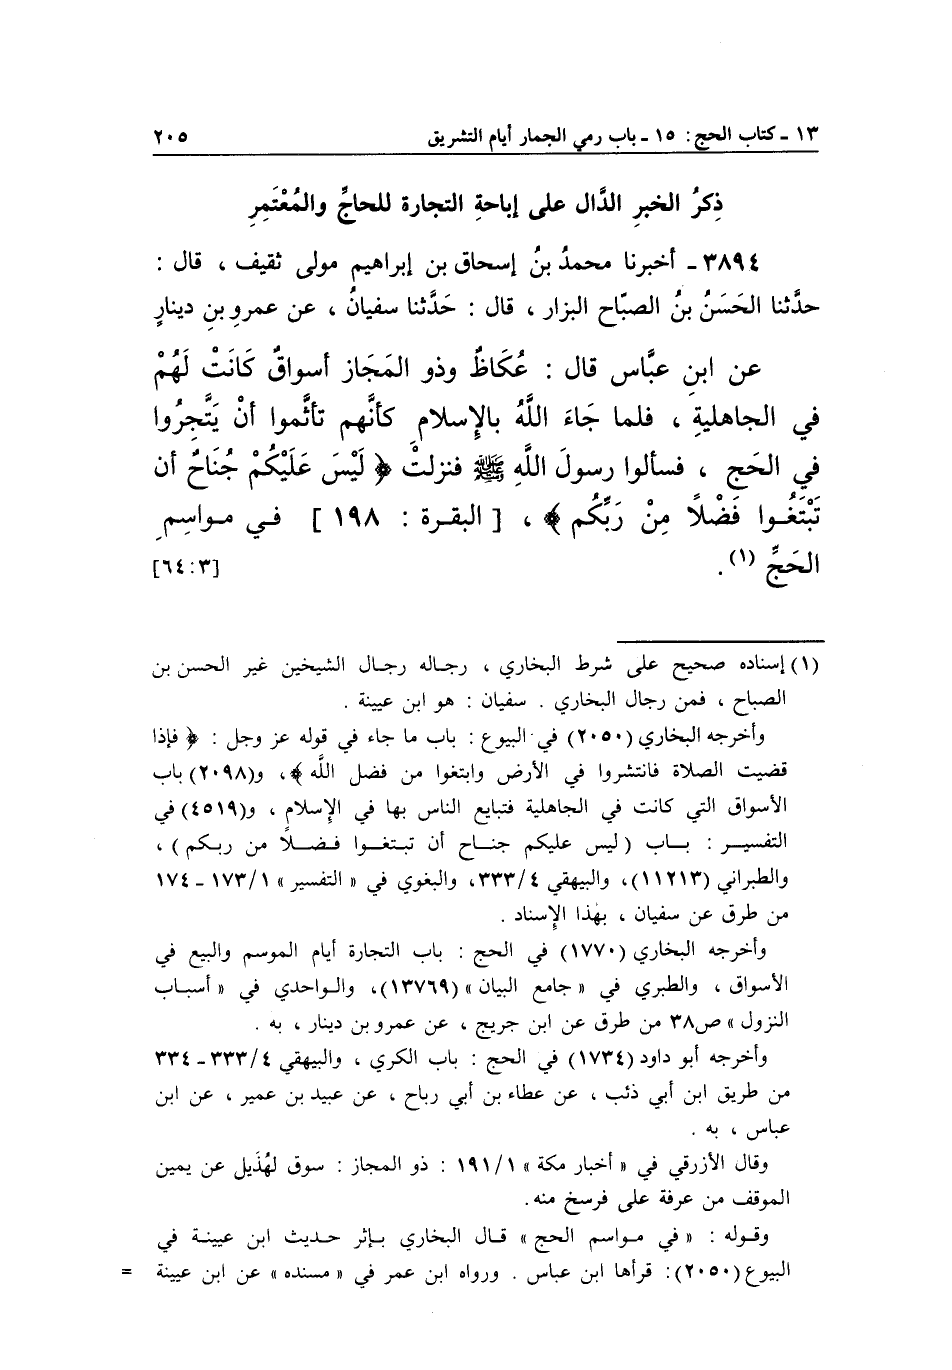 ١٣ ـ كتاب الحج : ١٥ ـ باب رمي الجمار أيام التشريق ٢٠٥
ذِكرُ الخبرِ الدَّال على إباحةِ التجارة للحاجِّ والمُعْتَمِرِ
٣٨٩٤ ـ أخبرنا محمدُ بنُ إسحاق بن إبراهيم مولى ثقيف ، قال :
حدَّثنا الحَسَنُ بنُ الصبّاح البزار ، قال : حَدَّثنا سفيانُ ، عن عمرو بنِ دينارٍ
عن ابنِ عبَّاس قال : عُكَاظُ وذو المَجَاز أسواقٌ كَانَتْ لَهُمْ
في الجاهليةِ ، فلما جَاءَ اللَّهُ بالإِسلام كأنَّهم تأثَّموا أنْ يَتَّجِرُوا
في الحَج ، فسألوا رسولَ اللَّهِ ﷺ فنزلتْ ﴿ لَيْسَ عَلَيْكُمْ جُنَاحٌ أن
تَبْتَغُوا فَضْلاً مِنْ رَبِّكُم ﴾ ، [ البقرة : ١٩٨ ] في مواسِمِ
الحَجِّ (١) . [٦٤:٣]
(١) إسناده صحيح على شرط البخاري ، رجاله رجال الشيخين غير الحسن بن
الصباح ، فمن رجال البخاري . سفيان : هو ابن عيينة .
وأخرجه البخاري (٢٠٥٠) في البيوع : باب ما جاء في قوله عز وجل : ﴿ فإذا
قضيت الصلاة فانتشروا في الأرض وابتغوا من فضل اللَّه ﴾، و(٢٠٩٨) باب
الأسواق التي كانت في الجاهلية فتبايع الناس بها في الإِسلام ، و(٤٥١٩) في
التفسير : باب ( ليس عليكم جناح أن تبتغوا فضلاً من ربكم ) ،
والطبراني (١١٢١٣)، والبيهقي ٣٣٣/٤، والبغوي في « التفسير » ١٧٣/١ ـ ١٧٤
من طرق عن سفيان ، بهذا الإِسناد .
وأخرجه البخاري (١٧٧٠) في الحج : باب التجارة أيام الموسم والبيع في
الأسواق ، والطبري في « جامع البيان » (١٣٧٦٩)، والواحدي في « أسباب
النزول » ص٣٨ من طرق عن ابن جريج ، عن عمرو بن دينار ، به .
وأخرجه أبو داود (١٧٣٤) في الحج : باب الكري ، والبيهقي ٣٣٣/٤ ـ ٣٣٤
من طريق ابن أبي ذئب ، عن عطاء بن أبي رباح ، عن عبيد بن عمير ، عن ابن
عباس ، به .
وقال الأزرقي في « أخبار مكة » ١٩١/١ : ذو المجاز : سوق لهُذَيل عن يمين
الموقف من عرفة على فرسخ منه.
وقوله : « في مواسم الحج » قال البخاري بإثر حديث ابن عيينة في
البيوع (٢٠٥٠): قرأها ابن عباس . ورواه ابن عمر في « مسنده » عن ابن عيينة =